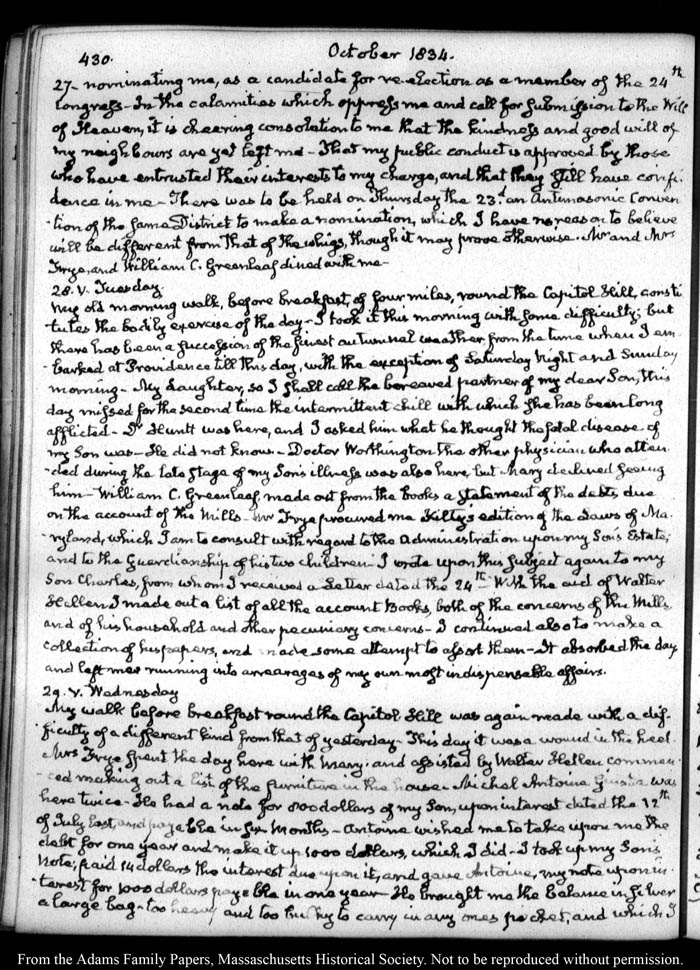 430.
October 1834.
27- nominating me, as a candidate for re-election as a member of the 24th
Congress- In the calamities which oppress me and call for submission to the Will
of Heaven, it is cheering consolation to me that the kindness and good will of
my neighbours are yet left me- That my public conduct is approved by those
who have entrusted their interests to my charge, and that they still have confi-
dence in me- There was to be held on Thursday the 23d. an Antimasonic Conven-
tion of the same District to make a nomination, which I have no reason to believe
will be different from that of the whigs, though it may prove otherwise. Mr and Mrs
Frye, and William C. Greenleaf dined with me-
28. V. Tuesday.
My old morning walk, before breakfast, of four miles, round the Capitol Hill, consti-
tutes the bodily exercise of the day- I took it this morning with some difficulty; but
there has been a succession of the finest autumnal weather from the time when I em-
barked at Providence till this day, with the exception of Saturday Night and Sunday
morning- My daughter, so I shall call the bereaved partner of my dear Son, this
day missed for the second time the intermittent chill with which she has been long
afflicted- Dr Huntt was here, and I asked him what he thought the fatal disease of
my Son was- He did not know- Doctor Worthington the other physician who atten-
ded during the late stage of my Son's illness was also here, but Mary declined seeing
him- William C. Greenleaf, made out from the books a statement of the debts, due
on the account of the Mills- Mr Frye procured me Kilty's edition of the Laws of Ma-
ryland, which I am to consult with regard to the administration upon my Son's Estate;
and to the Guardianship of his two children- I wrote upon this subject again to my
Son Charles, from whom I received a Letter dated the 24th- With the aid of Walter
Hellen I made out a list of all the account Books, both of the concerns of the Mills
and of his household and other pecuniary concerns- I continued also to make a
collection of his papers, and made some attempt to assort them- It absorbed the day
and left me running into arrearages of my own most indispensable affairs.
29. V. Wednesday
My walk before breakfast round the Capitol Hill was again made with a dif-
ficulty of a different kind from that of yesterday- This day it was a wound in the heel.
Mrs Frye spent the day here with Mary. and assisted by Walter Hellen commen-
ced making out a list of the furniture in the house. Michel Antoine Giusta was
here twice- He had a note for 800 dollars of my Son, upon interest dated the 12th
of July last, and payable in six months- Antoine wished me to take upon me the
debt for one year and make it up 1000 dollars, which I did- I took up my Son's
Note; paid 14 dollars the interest due upon it, and gave Antoine, my note upon in-
terest for 1000 dollars payable in one year- He brought me the balance in silver
a large bag- too heavy and too bulky to carry in any ones pocket, and which I
From the Adams Family Papers, Massachusetts Historical Society. Not to be reproduced without permission.